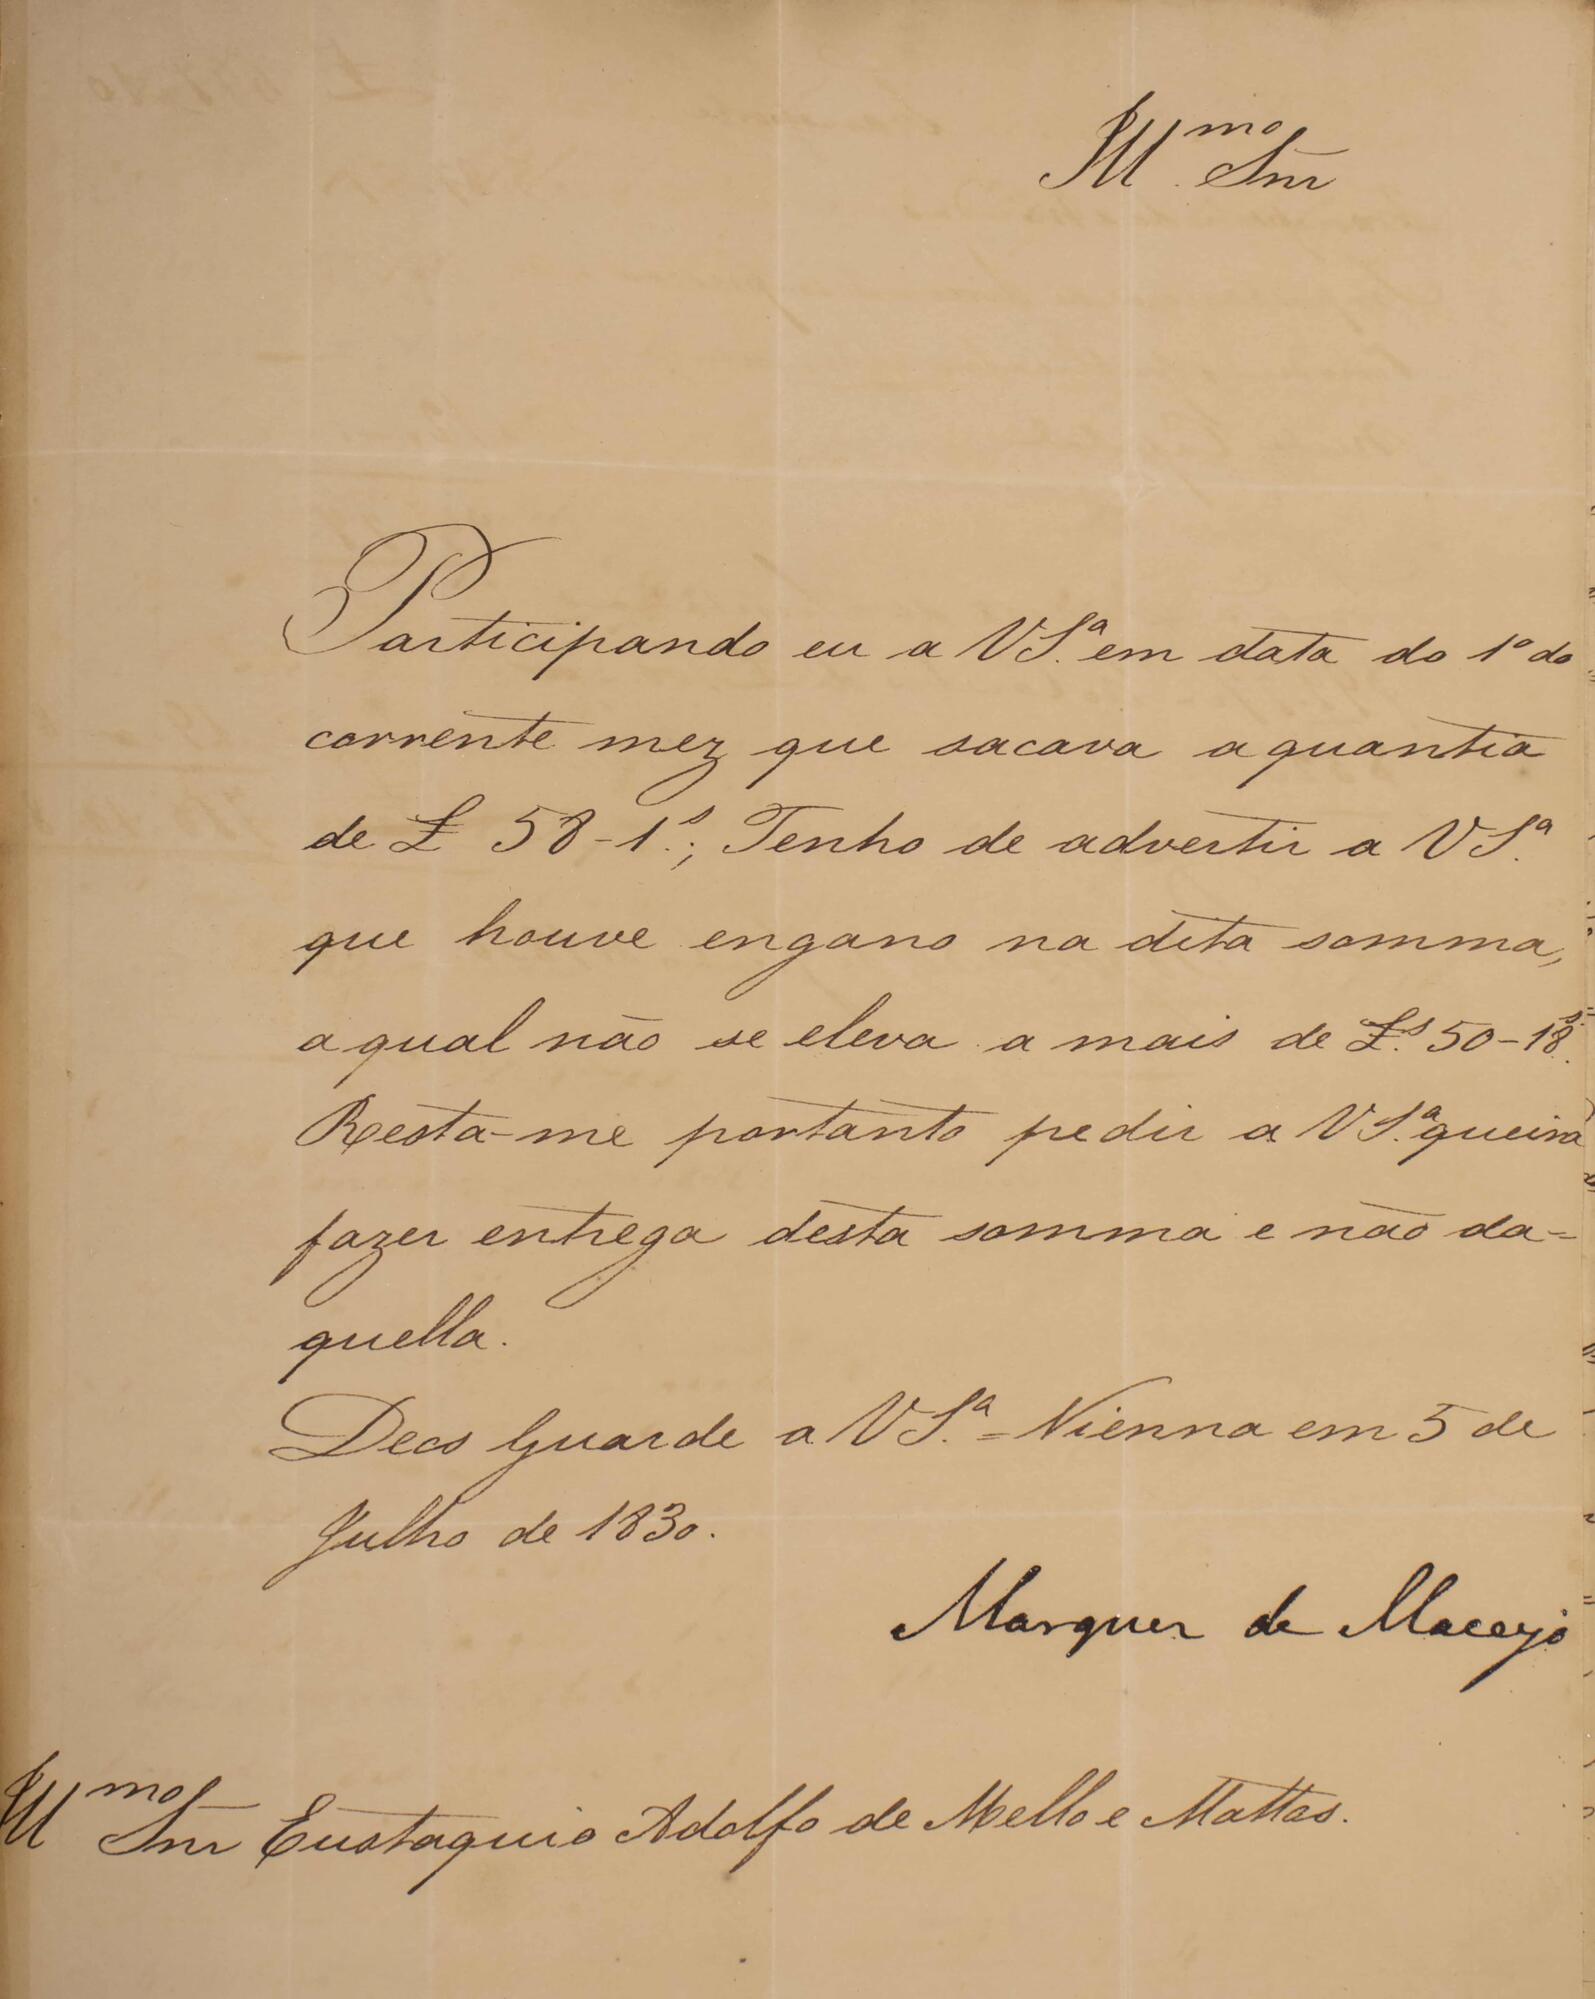 Illmo Snr
Participando eu a V Sª. em data do 1º do
corrente mez que sacava a quantia
de £ 58-1s.; Tenho de advertir a V Sª.
que houve engano na dita somma,
a qual não se eleva a mais de £s. 50-18s.
Resta-me portanto pedir a V Sª. queira
fazer entrega desta somma e não da=
quella.
Deos Guarde a V Sª. = Vienna em 5 de
Julho de 1830.
Marquez de Maceyó
Illmo Snr Eustaquio Adolfo de Mello e Mattos.